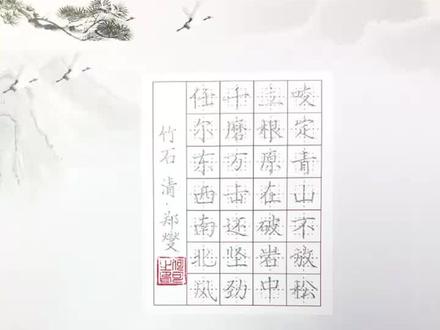 咬定青山不放松
立根原在破岩中
千磨万击还坚劲
任尔东西南北风
竹石 清·郑燮